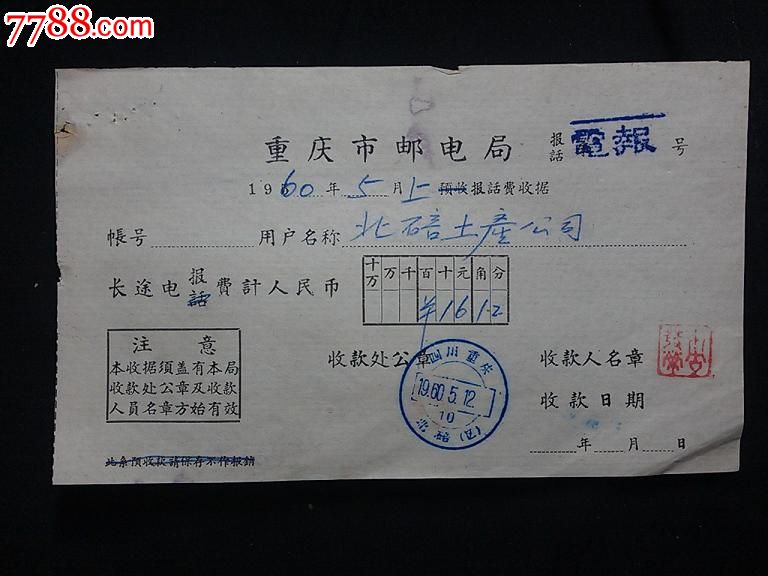 7788.com
重庆市邮电局 报话 電報 号
1960年5月上预收报话费收据
帐号 用户名称 北碚土產公司
十万 万 千 百 十 元 角 分
长途电报话费計人民币 ¥16 12
注意
本收据须盖有本局
收款处公章及收款
人員名章方始有效
收款处公章 收款人名章
四川重庆
1960.5.12
10
北碚(四)
收款日期
年 月 日
此系预收款请保存不作报銷